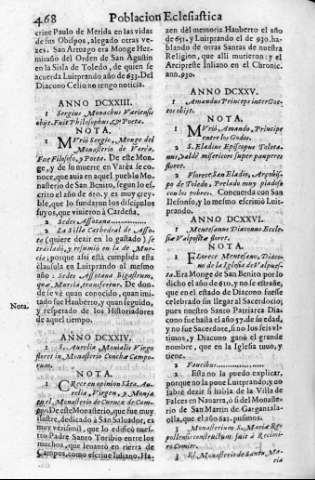 468 Poblacion Eclesiastica
crive Paulo de Merida en las vidas
de sus Obispos, alegado otras ve-
zes. San Arturago era Monge Her-
mitaño del Orden de San Agustin
en la Sisla de Toledo, de quien se
acuerda Luitprando año de 633. Del
Diacono Celio no tengo noticia.
ANNO DCXXIII.
1 Sergius Monachus Variensis
obijt. Fuit Philosophus, & Poeta.
NOTA.
1 MVriò Sergio, Monge del
Monasterio de Varia.
Fue Filosofo, y Poeta. De este Mon-
ge, y de su muerte en Varia se co-
noce, que auia en aquel pueblo Mo-
nasterio de San Benito, segun lo es-
crito el año de 610. y es muy crey-
ble, que lo fundaron los discipulos
suyos, que vinieron à Cardeña.
2 Sedes Assotana
2 La Silla Cathedral de Asso-
te (quiere dezir en lo gastado) se
trasladò, y resumiò en la de Mur-
cia, porque assi está cumplida esta
clausula en Luitprando al mesmo
año: Sedes Assotana Bigastrum,
quæ Murcia, transfertur. De don-
de se vè quan conocido, quan imi-
tado fue Hauberto, y quan seguido,
y respetado de los Historiadores
de aquel tiempo.
Nota.
ANNO DCXXIV.
1 S. Aurelia Montalis Virgo
floret in Monasterio Conchæ Campo-
rum.
NOTA.
1 CRece en opinion Säta Au-
relia, Virgen, y Monja
en el Monasterio de Cuenca de Cam-
pos. De este Monasterio, que fue muy
ilustre, dedicado à San Salvador, es
muy verisimil, que lo edificò nues-
tro Padre Santo Toribio entre los
muchos, que leuantò en tierra de
Campos, como escriue Iuliano. Ha-
zen del memoria Hauberto el año
de 651. y Luitprando el de 930. ha-
blando de otras Santas de nuestra
Religion, que alli murieron: y el
Arcipreste Iuliano en el Chronic.
ann. 930.
ANNO DCXXV.
1 Amandus Princeps inter Got-
tos obijt.
NOTA.
1 MVriò, Amando, Principe
entre los Godos.
2 S. Eladius Episcopus Toleta-
nus, valdè misericors super pauperes
floret.
2 Florece San Eladio, Arçobis-
po de Toledo, Prelado muy piadoso
con los pobres. Concuerda con San
Ilefonso, y lo mesmo escriuiò Luit-
prando.
ANNO DCXXVI.
1 Montesianus Diaconus Eccle-
siæ Valpuestæ floret.
NOTA.
1 FLorece Montesano, Diaco-
no de la Iglesia de Valpues-
ta. Era Monge de San Benito por lo
dicho el año de 610. y no se estrañe,
que en el estado de Diacono fuesse
celebrado sin llegar al Sacerdocio;
pues nuestro Santo Patriarca Dia-
cono fue hasta el año 57. de su edad,
y no fue Sacerdote, si no los seis vl-
timos, y Diacono ganò el grande
nombre, que en la Iglesia tuuo, y
tiene.
2 Faucibus
2 Esta no la puedo explicar,
porque no la pone Luitprando; y no
sabrè dezir si habla de la Villa de
Falces en Navarra, ò si del Monaste-
rio de San Martin de Gargantala-
olla, que el año 845. pusimos.
3 Monasterium S. Mariæ Ri-
3 El Monasterio de Santa Ma-
ria